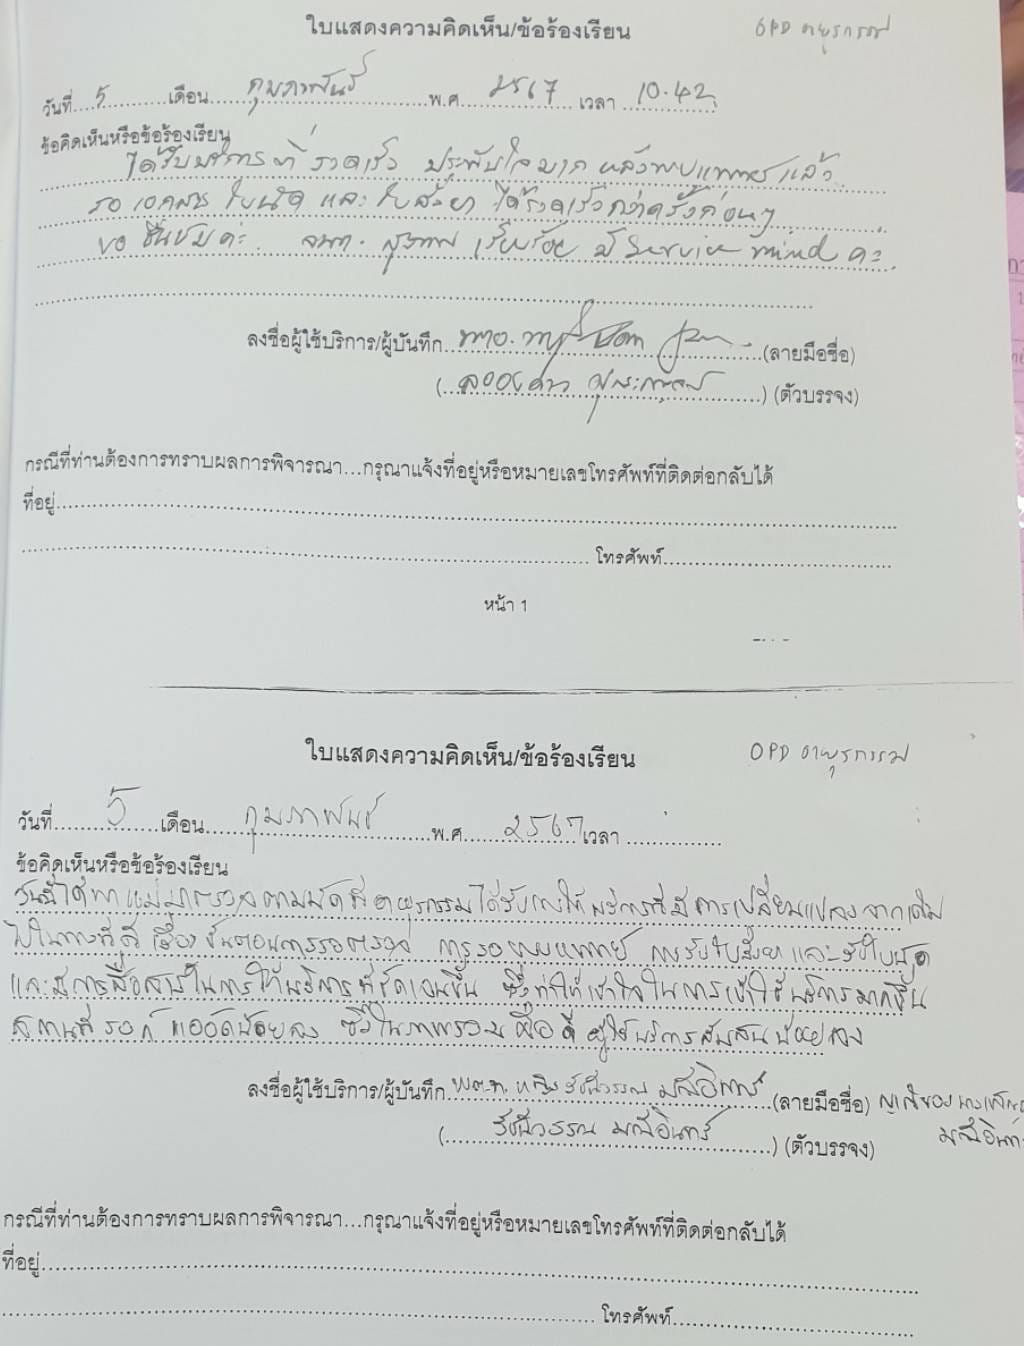 ใบแสดงความคิดเห็น/ข้อร้องเรียน
OPD อายุรกรรม
วันที่....5..........เดือน....กุมภาพันธ์....พ.ศ....2567....เวลา....10.42
ข้อคิดเห็นหรือข้อร้องเรียน
ได้รับบริการที่รวดเร็ว ประทับใจมาก หลังพบแพทย์แล้ว
รอเอกสาร ใบนัด และใบสั่งยา ได้รวดเร็วกว่าครั้งก่อนๆ
ขอชื่นชมค่ะ จนท. สุภาพ เรียบร้อย มี Service mind ค่ะ
ลงชื่อผู้ใช้บริการ/ผู้บันทึก....(ลายมือชื่อ)
(....ละอองดาว....) (ตัวบรรจง)
กรณีที่ท่านต้องการทราบผลการพิจารณา...กรุณาแจ้งที่อยู่หรือหมายเลขโทรศัพท์ที่ติดต่อกลับได้
ที่อยู่....
....โทรศัพท์....
หน้า 1
ใบแสดงความคิดเห็น/ข้อร้องเรียน
OPD อายุรกรรม
วันที่....5....เดือน....กุมภาพันธ์....พ.ศ....2567เวลา....
ข้อคิดเห็นหรือข้อร้องเรียน
วันนี้ได้พาแม่มาตรวจตามนัดที่อายุรกรรมได้รับการให้บริการที่มีการเปลี่ยนแปลงจากเดิม
ไปในทางที่ดี เรื่องขั้นตอนการรอตรวจ การรอพบแพทย์ การรับใบสั่งยาและรับใบนัด
และมีการสื่อสารในการให้บริการที่ชัดเจนขึ้น ซึ่งทำให้เข้าใจในการเข้าใช้บริการมากขึ้น
สถานที่รอก็แออัดน้อยลง ซึ่งในภาพรวมคือดี ผู้ใช้บริการสับสนน้อยลง
ลงชื่อผู้ใช้บริการ/ผู้บันทึก....พ.ต.ท. หญิง รัชนีวรรณ มณีอินทร์....(ลายมือชื่อ) ญาติของ
(....รัชนีวรรณ มณีอินทร์....) (ตัวบรรจง) มณีอินทร์
กรณีที่ท่านต้องการทราบผลการพิจารณา...กรุณาแจ้งที่อยู่หรือหมายเลขโทรศัพท์ที่ติดต่อกลับได้
ที่อยู่....
....โทรศัพท์....